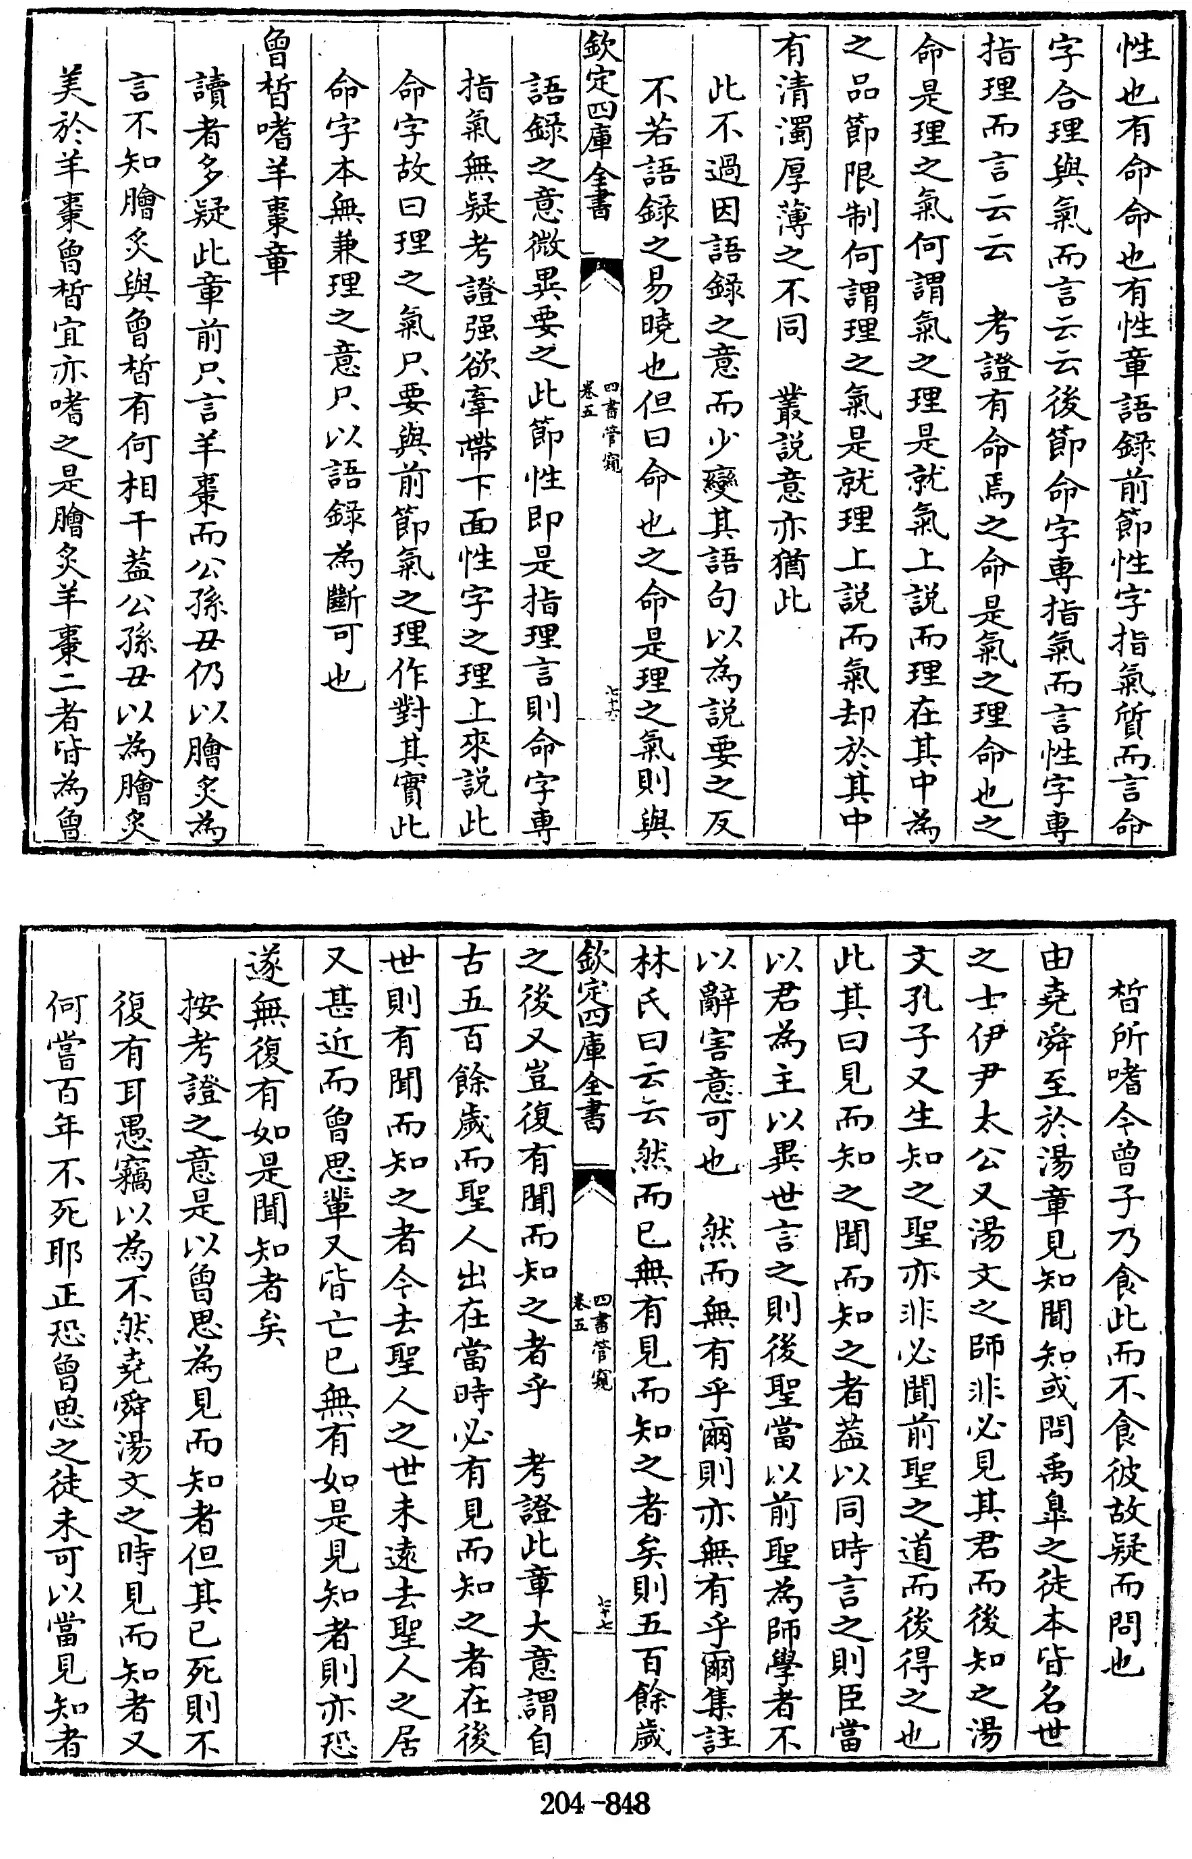 性也有命命也有性章語錄前節性字指氣質而言命
字合理與氣而言云云後節命字專指氣而言性字專
指理而言云云　考證有命焉之命是氣之理命也之
命是理之氣何謂氣之理是就氣上説而理在其中為
之品節限制何謂理之氣是就理上説而氣却於其中
有清濁厚薄之不同　叢説意亦猶此
此不過因語錄之意而少變其語句以為説要之反
不若語錄之易曉也但曰命也之命是理之氣則與
欽定四庫全書
四書管窺
卷五
七十六
語錄之意微異要之此節性即是指理言則命字專
指氣無疑考證强欲牽帶下面性字之理上來説此
命字故曰理之氣只要與前節氣之理作對其實此
命字本無兼理之意只以語錄為斷可也
曾晳嗜羊棗章
讀者多疑此章前只言羊棗而公孫丑仍以膾炙為
言不知膾炙與曾晳有何相干葢公孫丑以為膾炙
美於羊棗曾晳宜亦嗜之是膾炙羊棗二者皆為曾
晳所嗜今曾子乃食此而不食彼故疑而問也
由堯舜至於湯章見知聞知或問禹臯之徒本皆名世
之士伊尹太公又湯文之師非必見其君而後知之湯
文孔子又生知之聖亦非必聞前聖之道而後得之也
此其曰見而知之聞而知之者葢以同時言之則臣當
以君為主以異世言之則後聖當以前聖為師學者不
以辭害意可也　然而無有乎爾則亦無有乎爾集註
林氏曰云云然而已無有見而知之者矣則五百餘歲
欽定四庫全書
四書管窺
卷五
七十七
之後又豈復有聞而知之者乎　考證此章大意謂自
古五百餘歲而聖人出在當時必有見而知之者在後
世則有聞而知之者今去聖人之世未遠去聖人之居
又甚近而曾思輩又皆亡已無有如是見知者則亦恐
遂無復有如是聞知者矣
按考證之意是以曾思為見而知者但其已死則不
復有耳愚竊以為不然堯舜湯文之時見而知者又
何嘗百年不死耶正恐曾思之徒未可以當見知者
204-848